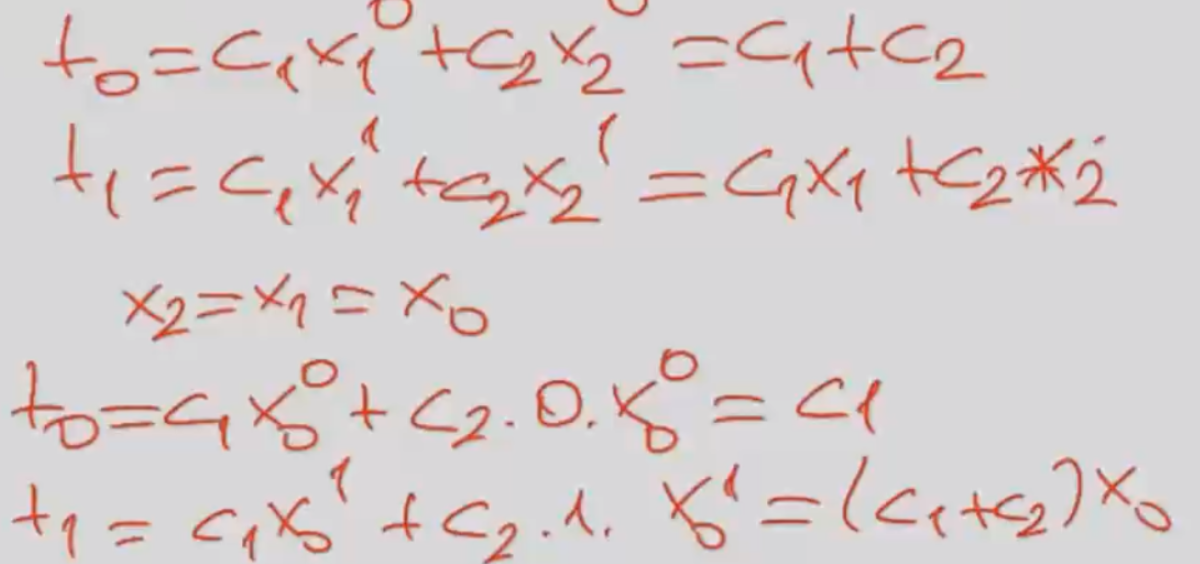 t₀ = c₁x₁⁰ + c₂x₂⁰ = c₁ + c₂
t₁ = c₁x₁¹ + c₂x₂¹ = c₁x₁ + c₂x₂
x₂ = x₁ = x₀
t₀ = c₁x₀⁰ + c₂ . 0 . x₀⁰ = c₁
t₁ = c₁x₀¹ + c₂ . 1 . x₀¹ = (c₁ + c₂)x₀